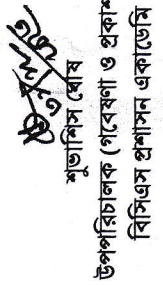 শুভাশিস ঘোষ
উপপরিচালক (গবেষণা ও প্রকাশ
বিসিএস প্রশাসন একাডেমি